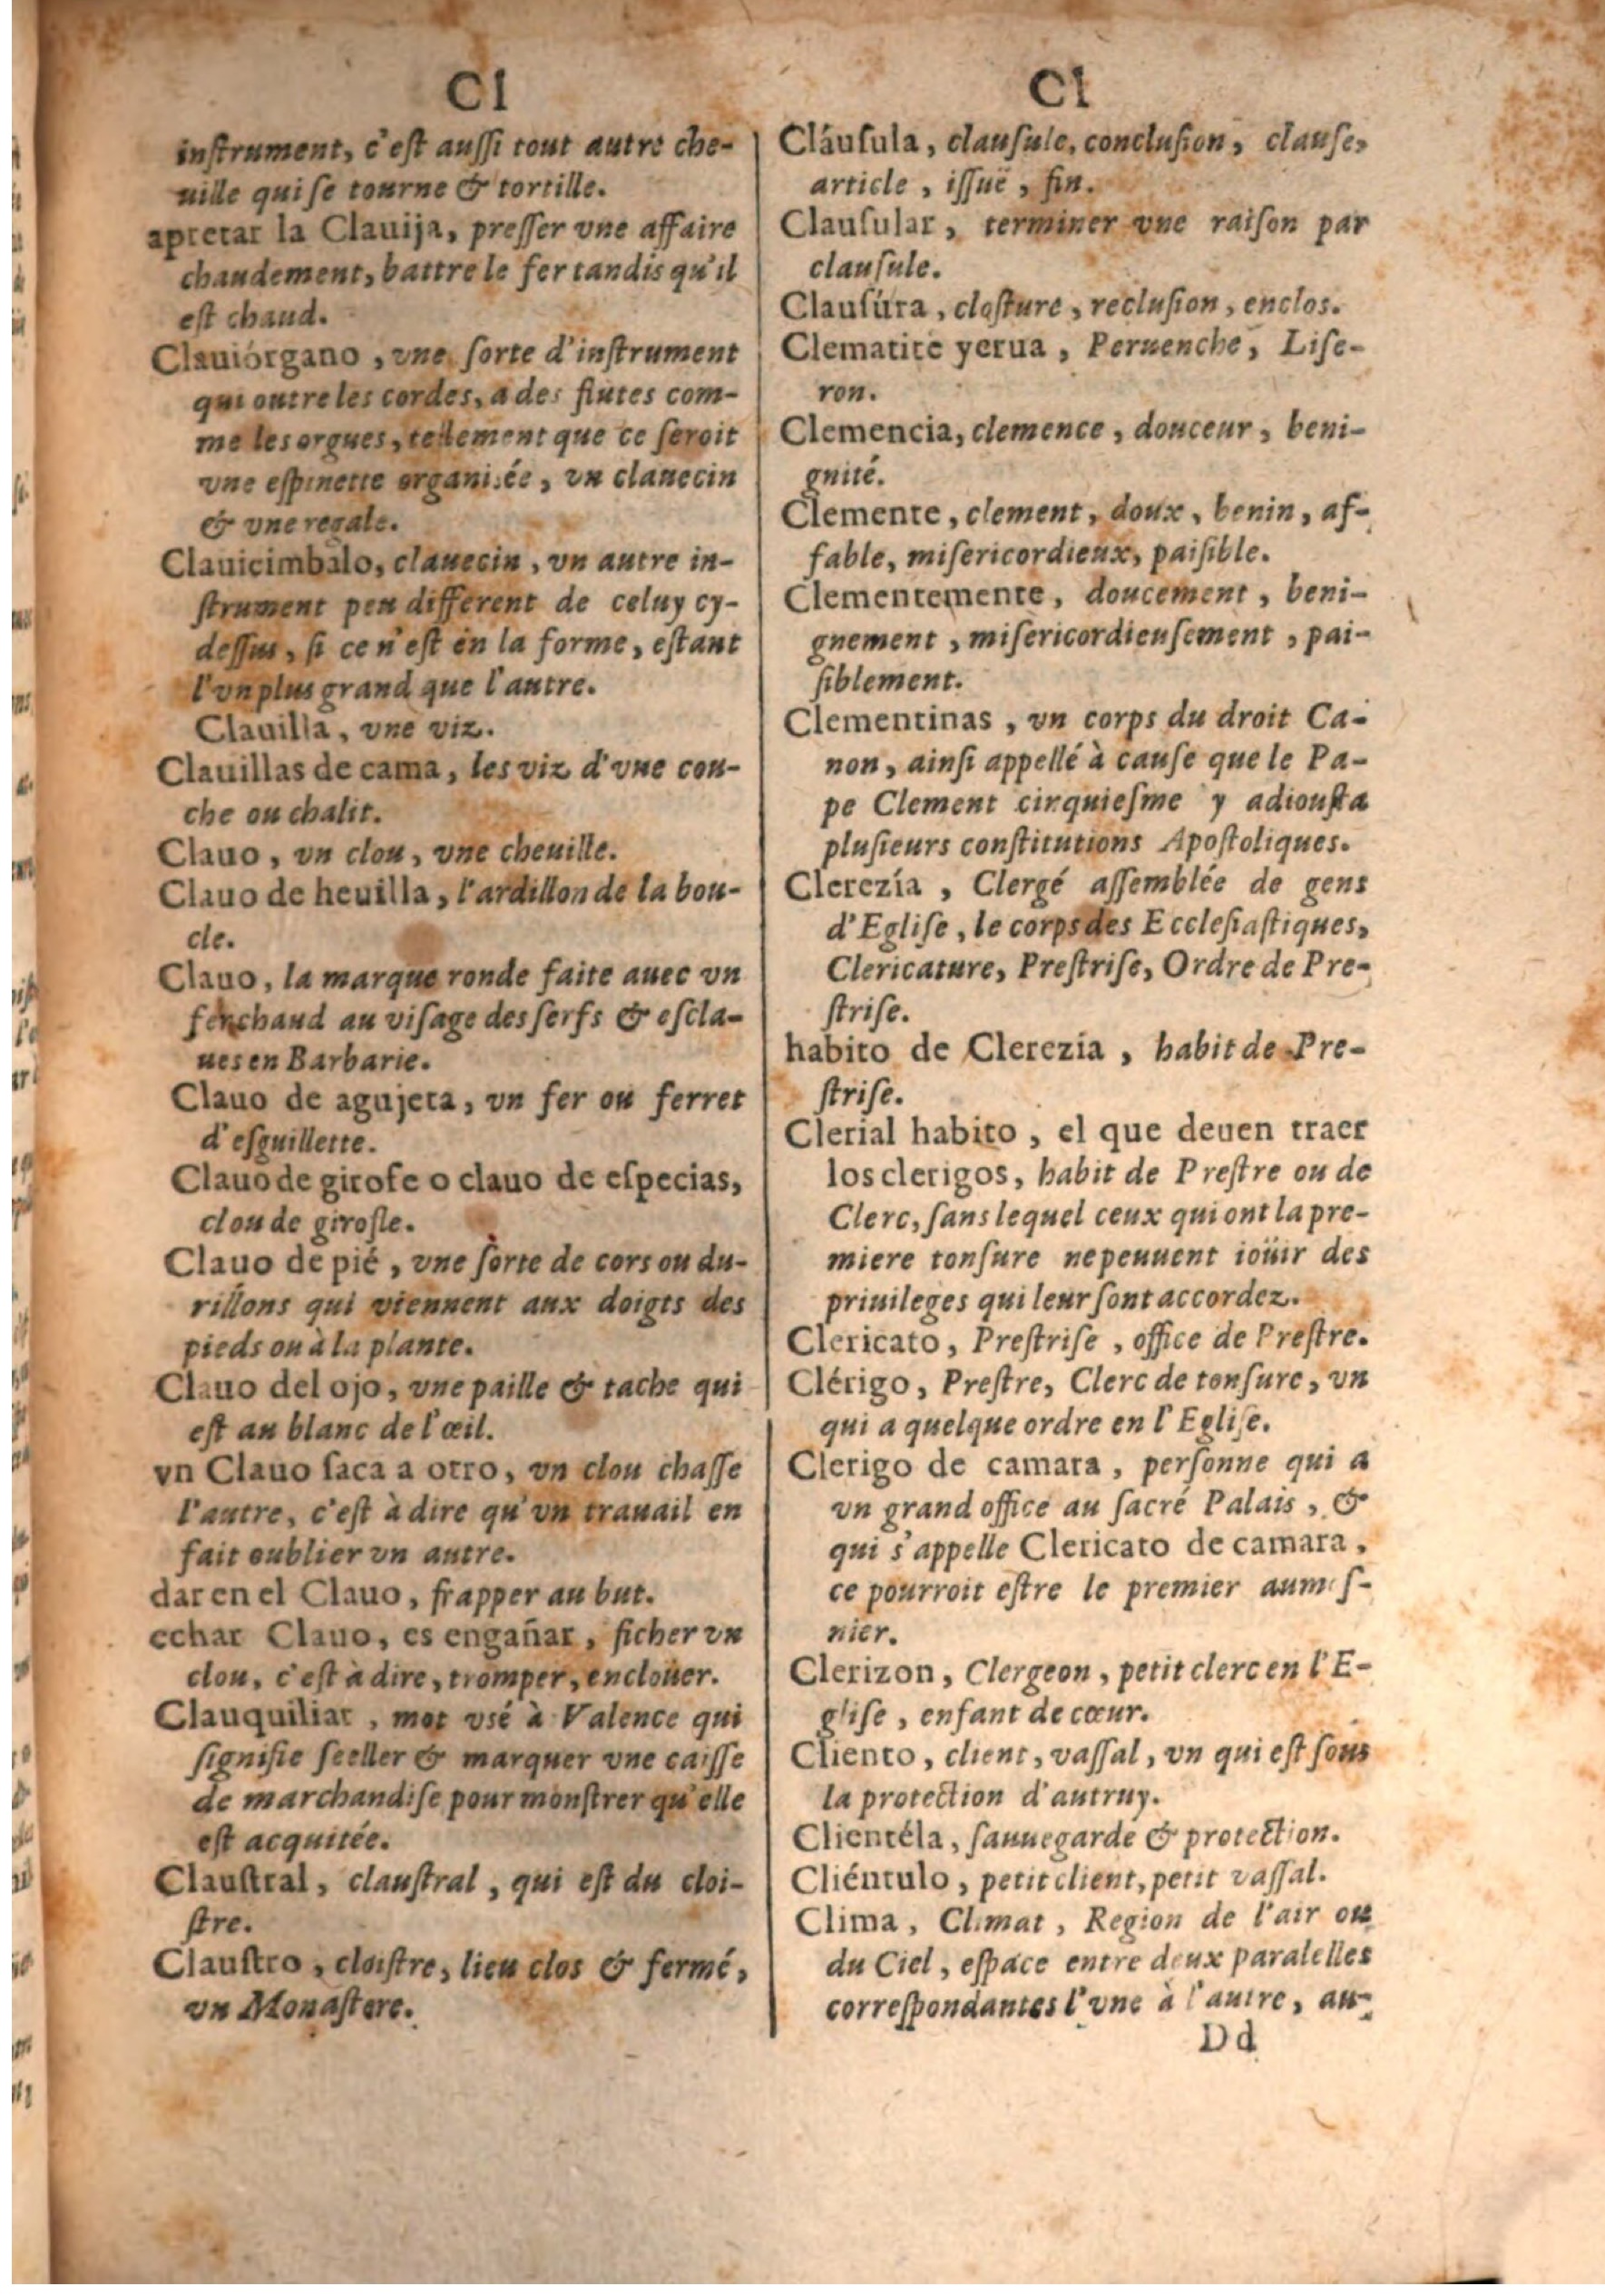 Cl
inſtrument, c'eſt auſſi tout autre che-
uille qui ſe tourne & tortille.
apretar la Clauija, preſſer vne affaire
chaudement, battre le fer tandis qu'il
eſt chaud.
Clauiórgano, vne ſorte d'inſtrument
qui outre les cordes, a des flutes com-
me les orgues, tellement que ce ſeroit
vne eſpinette organisée, vn clauecin
& vne regale.
Clauicimbalo, clauecin, vn autre in-
ſtrument peu different de celuy cy-
deſſus, ſi ce n'eſt en la forme, eſtant
l'vn plus grand que l'autre.
Clauilla, vne viz.
Clauillas de cama, les viz d'vne cou-
che ou chalit.
Clauo, vn clou, vne cheuille.
Clauo de heuilla, l'ardillon de la bou-
cle.
Clauo, la marque ronde faite auec vn
fer chaud au viſage des ſerfs & eſcla-
ues en Barbarie.
Clauo de agujeta, vn fer ou ferret
d'eſguillette.
Clauo de girofe o clauo de eſpecias,
clou de girofle.
Clauo de pié, vne ſorte de cors ou du-
rillons qui viennent aux doigts des
pieds ou à la plante.
Clauo del ojo, vne paille & tache qui
eſt au blanc de l'œil.
vn Clauo ſaca a otro, vn clou chaſſe
l'autre, c'eſt à dire qu'vn trauail en
fait oublier vn autre.
dar en el Clauo, frapper au but.
echar Clauo, es engañar, ficher vn
clou, c'eſt à dire, tromper, enclouer.
Clauquiliar, mot vsé à Valence qui
ſignifie ſeeller & marquer vne caiſſe
de marchandiſe pour monſtrer qu'elle
eſt acquitée.
Clauſtral, clauſtral, qui eſt du cloi-
ſtre.
Clauſtro, cloiſtre, lieu clos & fermé,
vn Monaſtere.
Cl
Cláuſula, clauſule, concluſion, clauſe,
article, iſſuë, fin.
Clauſular, terminer vne raiſon par
clauſule.
Clauſúra, cloſture, recluſion, enclos.
Clematite yerua, Peruenche, Liſe-
ron.
Clemencia, clemence, douceur, beni-
gnité.
Clemente, clement, doux, benin, af-
fable, miſericordieux, paiſible.
Clementemente, doucement, beni-
gnement, miſericordieuſement, pai-
ſiblement.
Clementinas, vn corps du droit Ca-
non, ainſi appellé à cauſe que le Pa-
pe Clement cinquieſme y adiouſta
pluſieurs conſtitutions Apoſtoliques.
Clerezía, Clergé aſſemblée de gens
d'Egliſe, le corps des Eccleſiaſtiques,
Clericature, Preſtriſe, Ordre de Pre-
ſtriſe.
habito de Clerezía, habit de Pre-
ſtriſe.
Clerial habito, el que deuen traer
los clerigos, habit de Preſtre ou de
Clerc, ſans lequel ceux qui ont la pre-
miere tonſure ne peuuent ioüir des
priuileges qui leur ſont accordez.
Clericato, Preſtriſe, office de Preſtre.
Clérigo, Preſtre, Clerc de tonſure, vn
qui a quelque ordre en l'Egliſe.
Clerigo de camara, perſonne qui a
vn grand office au ſacré Palais, &
qui s'appelle Clericato de camara,
ce pourroit eſtre le premier aumoſ-
nier.
Clerizon, Clergeon, petit clerc en l'E-
gliſe, enfant de cœur.
Cliento, client, vaſſal, vn qui eſt ſous
la protection d'autruy.
Clientéla, ſauuegarde & protection.
Cliéntulo, petit client, petit vaſſal.
Clima, Climat, Region de l'air ou
du Ciel, eſpace entre deux paralelles
correſpondantes l'vne à l'autre, au-
Dd